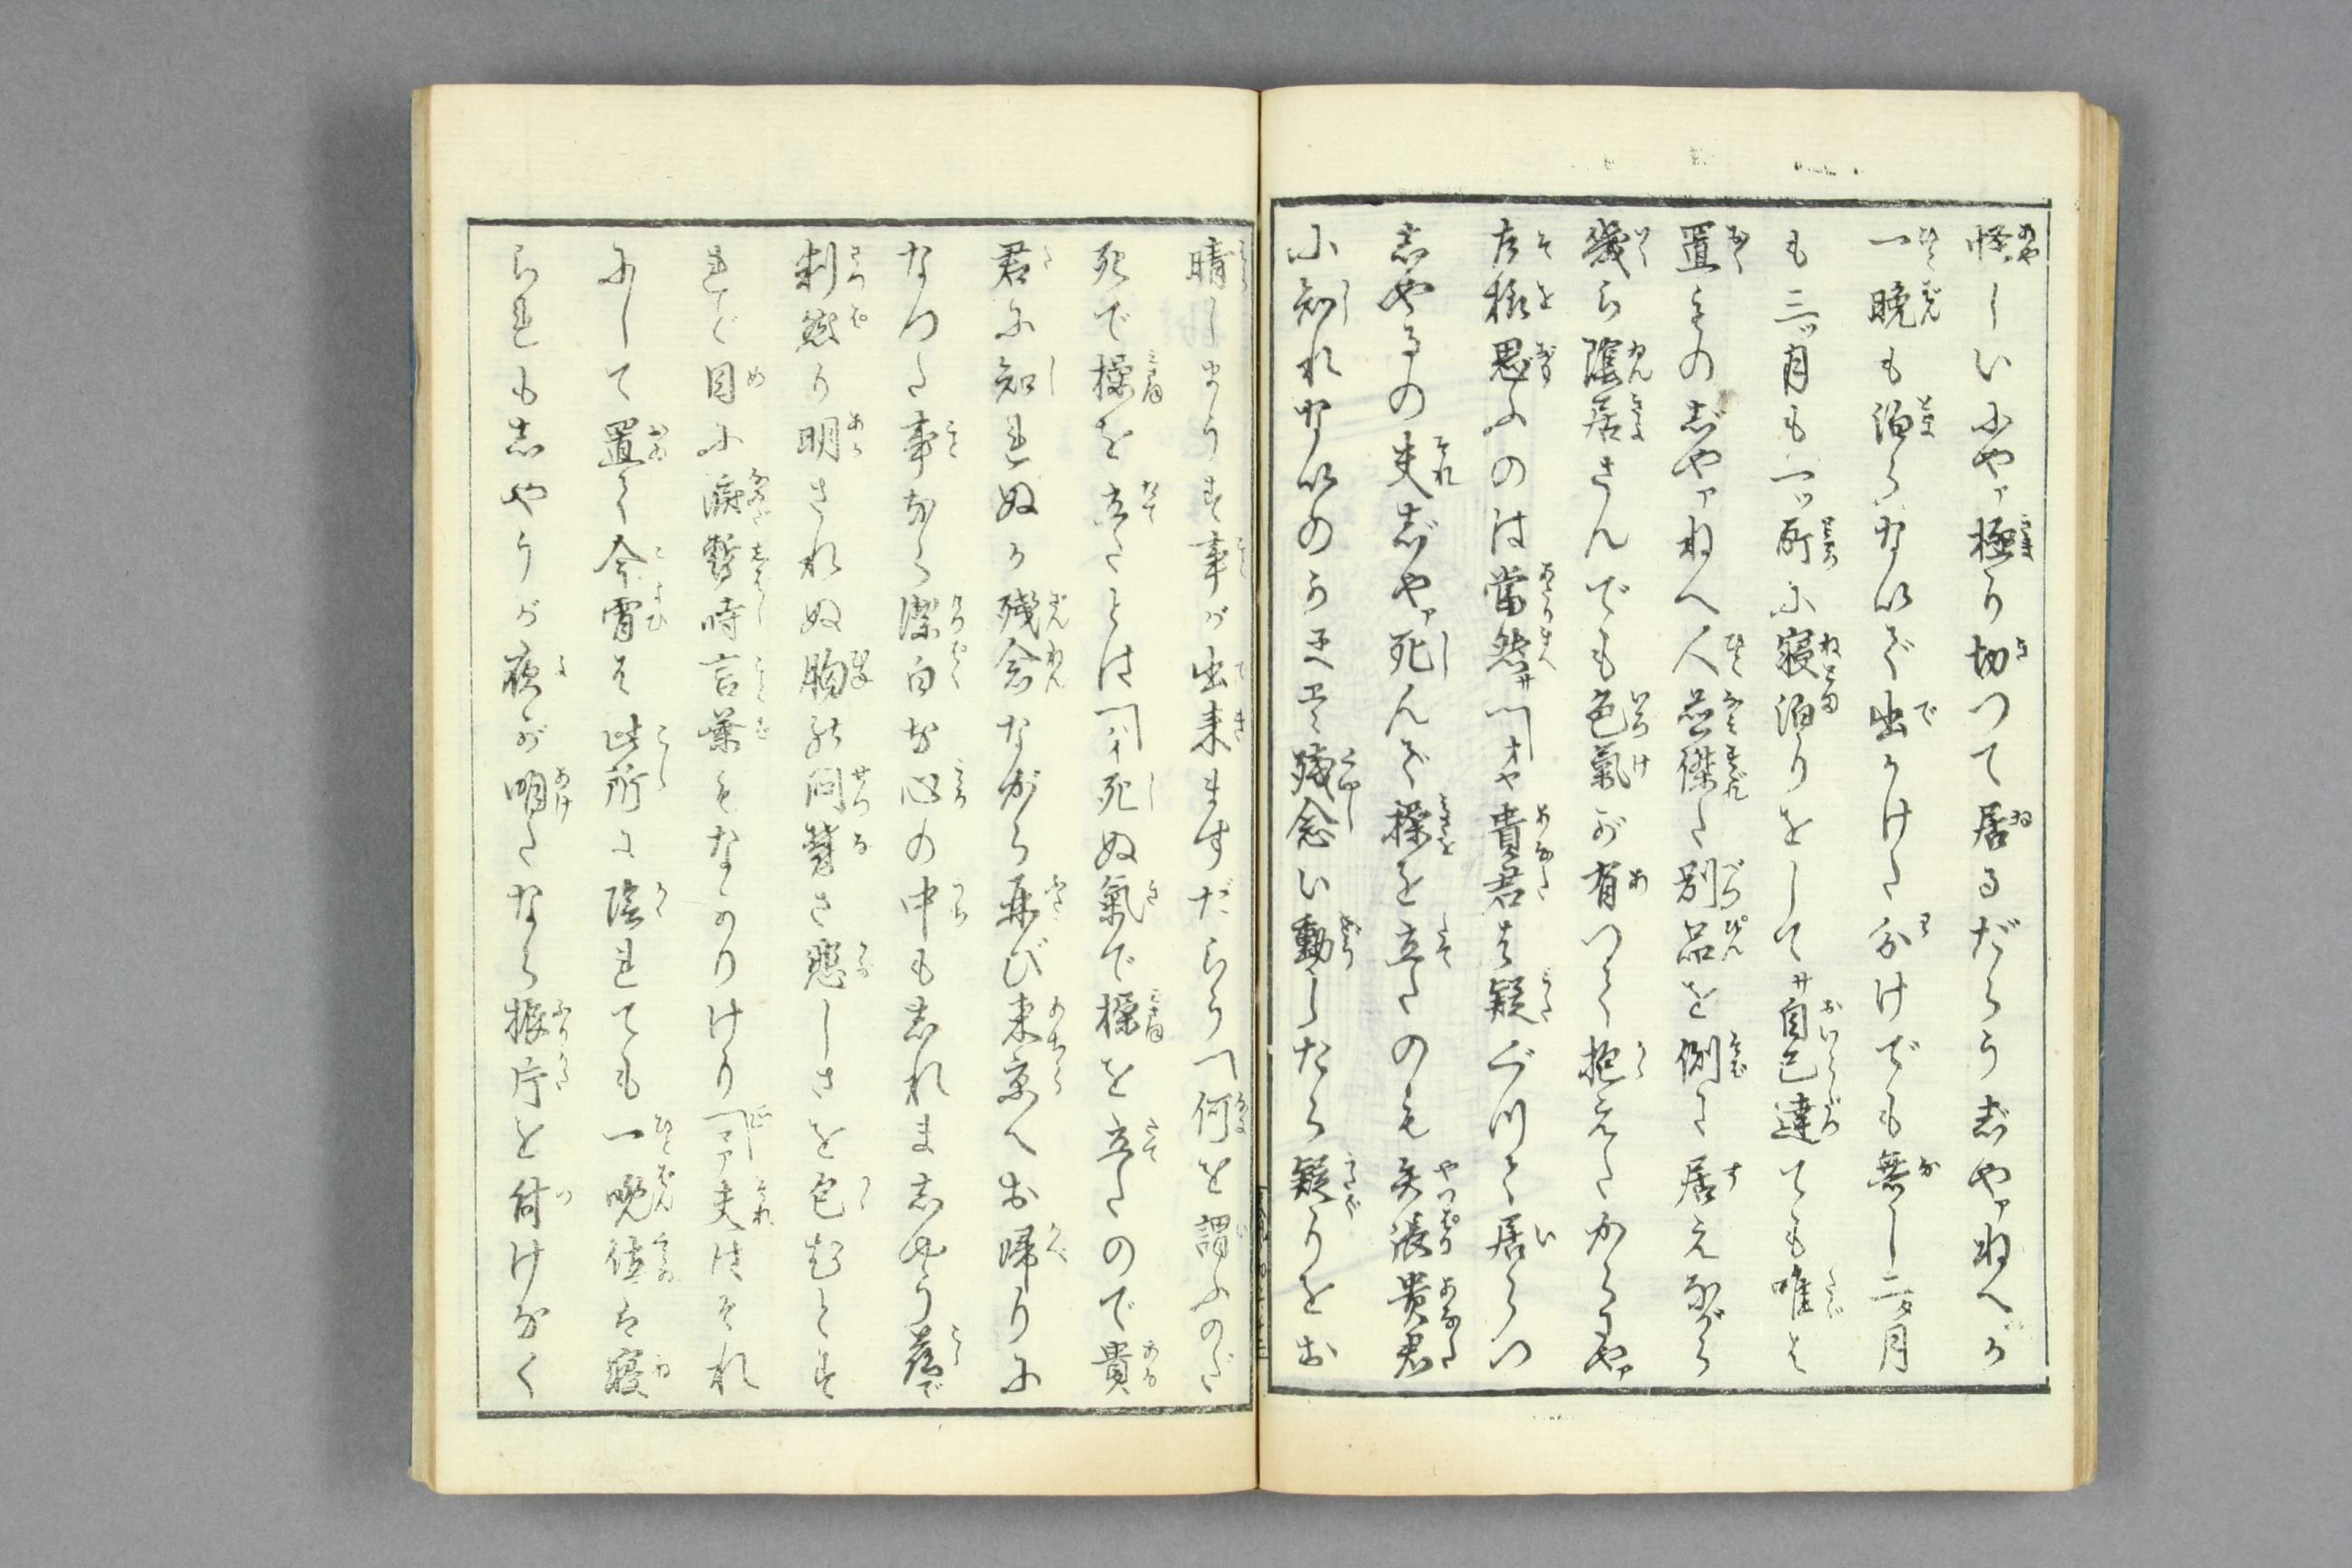 怪しいにやア極り切つて居るだらうぢやアねへか
一晩も泊らないで出かけた分けでも無し二タ月
も三ツ月も一ツ所に寝泊りをしてサ自己達ても唯は
置ものぢやアねへ人並傑た別品を側に居えながら
幾ら隠居さんでも色氣が有つて抱えたからにやア
左様思ふのは當然サ「オヤ貴君は疑ぐツて居らつ
しやるの夫ぢやア死んで操を立たのも矢張貴君
に知れないのかエヱヽ残念い動したら疑りをお
晴しまうす事が出来ますだらう「何を謂ふのだ
死で操を立たとは「ハイ死ぬ氣で操を立たので貴
君に知れぬか残念ながら再び東京へお帰りに
なつた事なら潔白な心の中も知れましやう爰で
判然り明されぬ胸の問答さ悲しさを包むとす
れど目に涙暫時言葉もなかりけり「マア夫はそれ
にして置て今宵は此所に隠れても一晩位は寝
られもしやうが夜が明たなら振片を付けなく